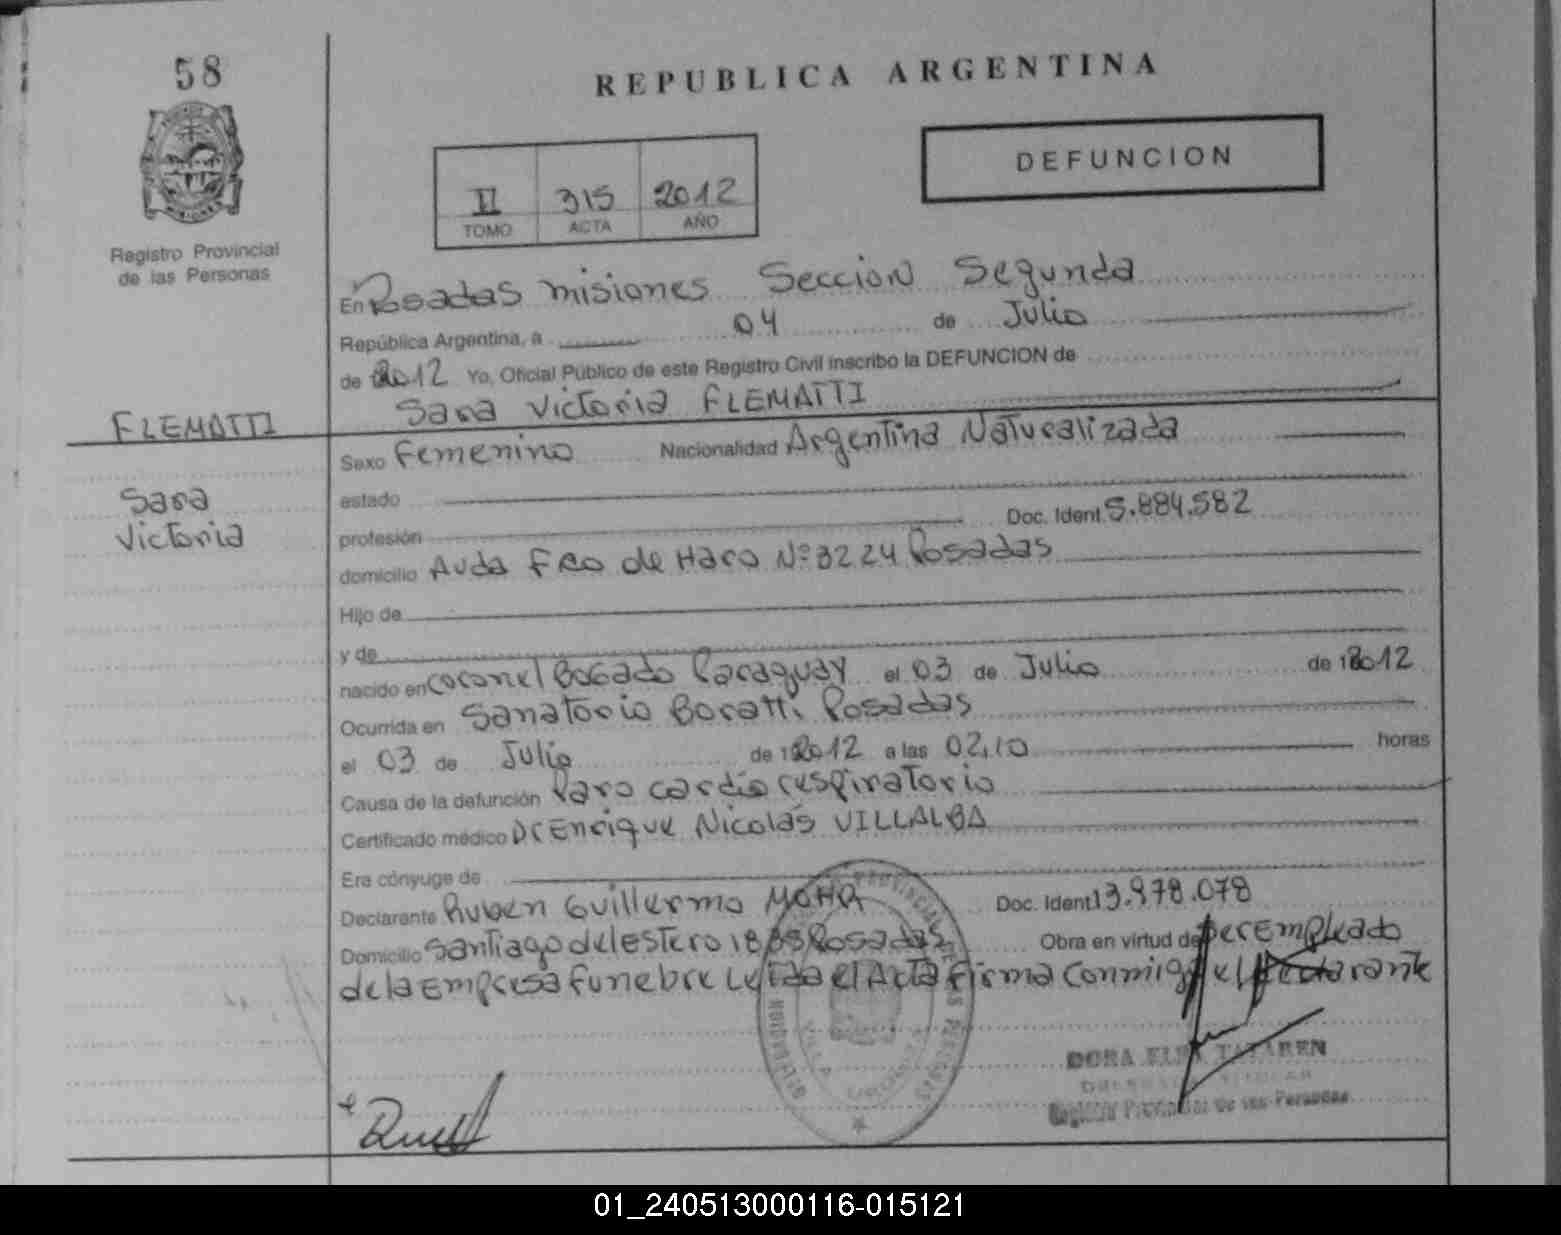 58
REPUBLICA ARGENTINA
DEFUNCION
II 315 2012
TOMO ACTA AÑO
Registro Provincial
de las Personas
En Posadas misiones Seccion Segunda
República Argentina, a 04 de Julio
de 2012 Yo, Oficial Público de este Registro Civil inscribo la DEFUNCION de
Sara Victoria FLEMATTI
FLEMATTI
Sara
Victoria
Sexo Femenino Nacionalidad Argentina Naturalizada
estado
profesión Doc. Ident. 5.884.582
domicilio Avda Fco de Haro Nº 3224 Posadas
Hijo de
y de
nacido en Coronel Bogado Paraguay el 03 de Julio de 2012
Ocurrida en Sanatorio Boratti Posadas
el 03 de Julio de 2012 a las 02,10 horas
Causa de la defunción Paro cardio respiratorio
Certificado médico Dr Enrique Nicolás VILLALBA
Era cónyuge de
Declarante Ruben Guillermo MOHR Doc. Ident 13.978.078
Domicilio Santiago del Estero Posadas Obra en virtud de ser Empleado
de la Empresa funebre Leida el Acta Firma Conmigo el declarante
DORA ELBA TATAREN
DELEGADA TITULAR
Registro Provincial de las Personas
01_240513000116-015121